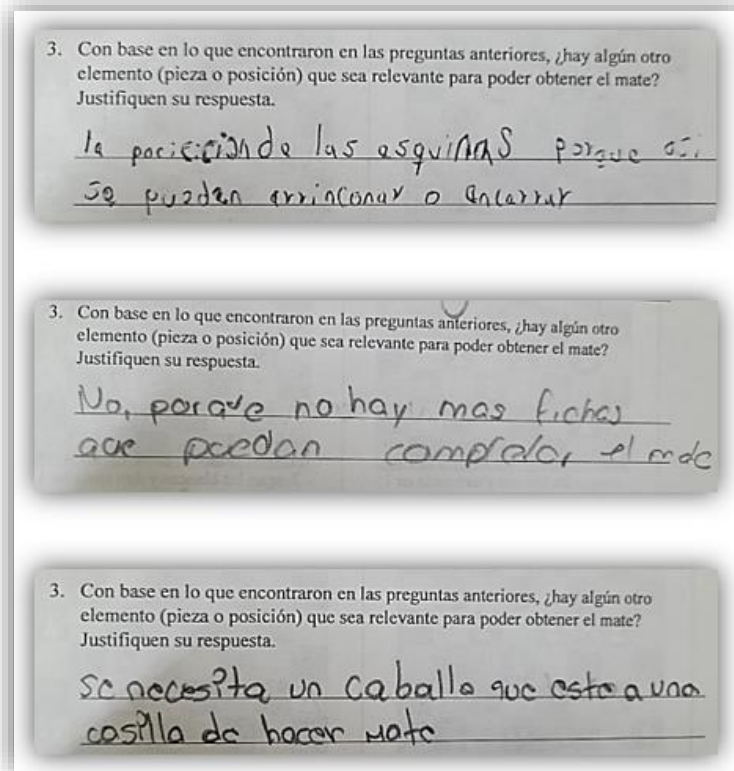 3. Con base en lo que encontraron en las preguntas anteriores, ¿hay algún otro
elemento (pieza o posición) que sea relevante para poder obtener el mate?
Justifiquen su respuesta.
la pocicición de las esquinas porque así
se puedan arrinconar o encarrar
3. Con base en lo que encontraron en las preguntas anteriores, ¿hay algún otro
elemento (pieza o posición) que sea relevante para poder obtener el mate?
Justifiquen su respuesta.
No, porque no hay mas fichas
que puedan el
3. Con base en lo que encontraron en las preguntas anteriores, ¿hay algún otro
elemento (pieza o posición) que sea relevante para poder obtener el mate?
Justifiquen su respuesta.
se necesita un caballo que este a una
casilla de hacer mate